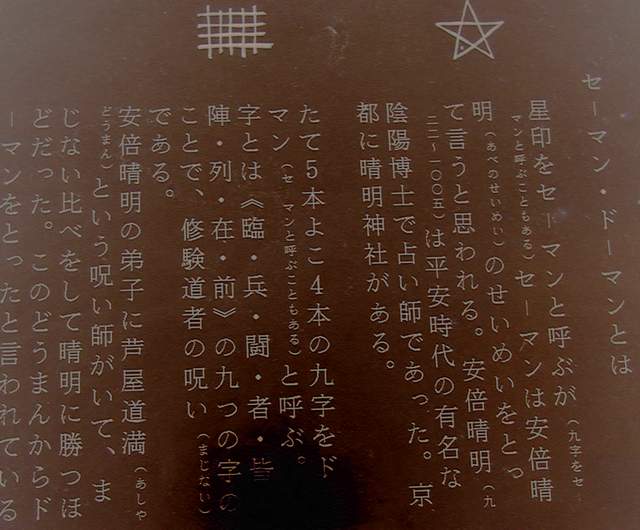 セーマン・ドーマンとは
星印をセーマンと呼ぶが(九字をセーマンと呼ぶこともある)セーマンは安倍晴
明(あべのせいめい)のせいめいをとっ
て言うと思われる。安倍晴明(九二一~一〇〇五)は平安時代の有名な
陰陽博士で占い師であった。京
都に晴明神社がある。
たて5本よこ4本の九字をド
マン(セーマンと呼ぶこともある)と呼ぶ。
字とは《臨・兵・闘・者・皆・
陣・列・在・前》の九つの字の
ことで、修験道者の呪い(まじない)
である。
安倍晴明の弟子に芦屋道満(あしやどうまん)という呪い師がいて、ま
じない比べをして晴明に勝つほ
どだった。このどうまんからド
ーマンをとったと言われている